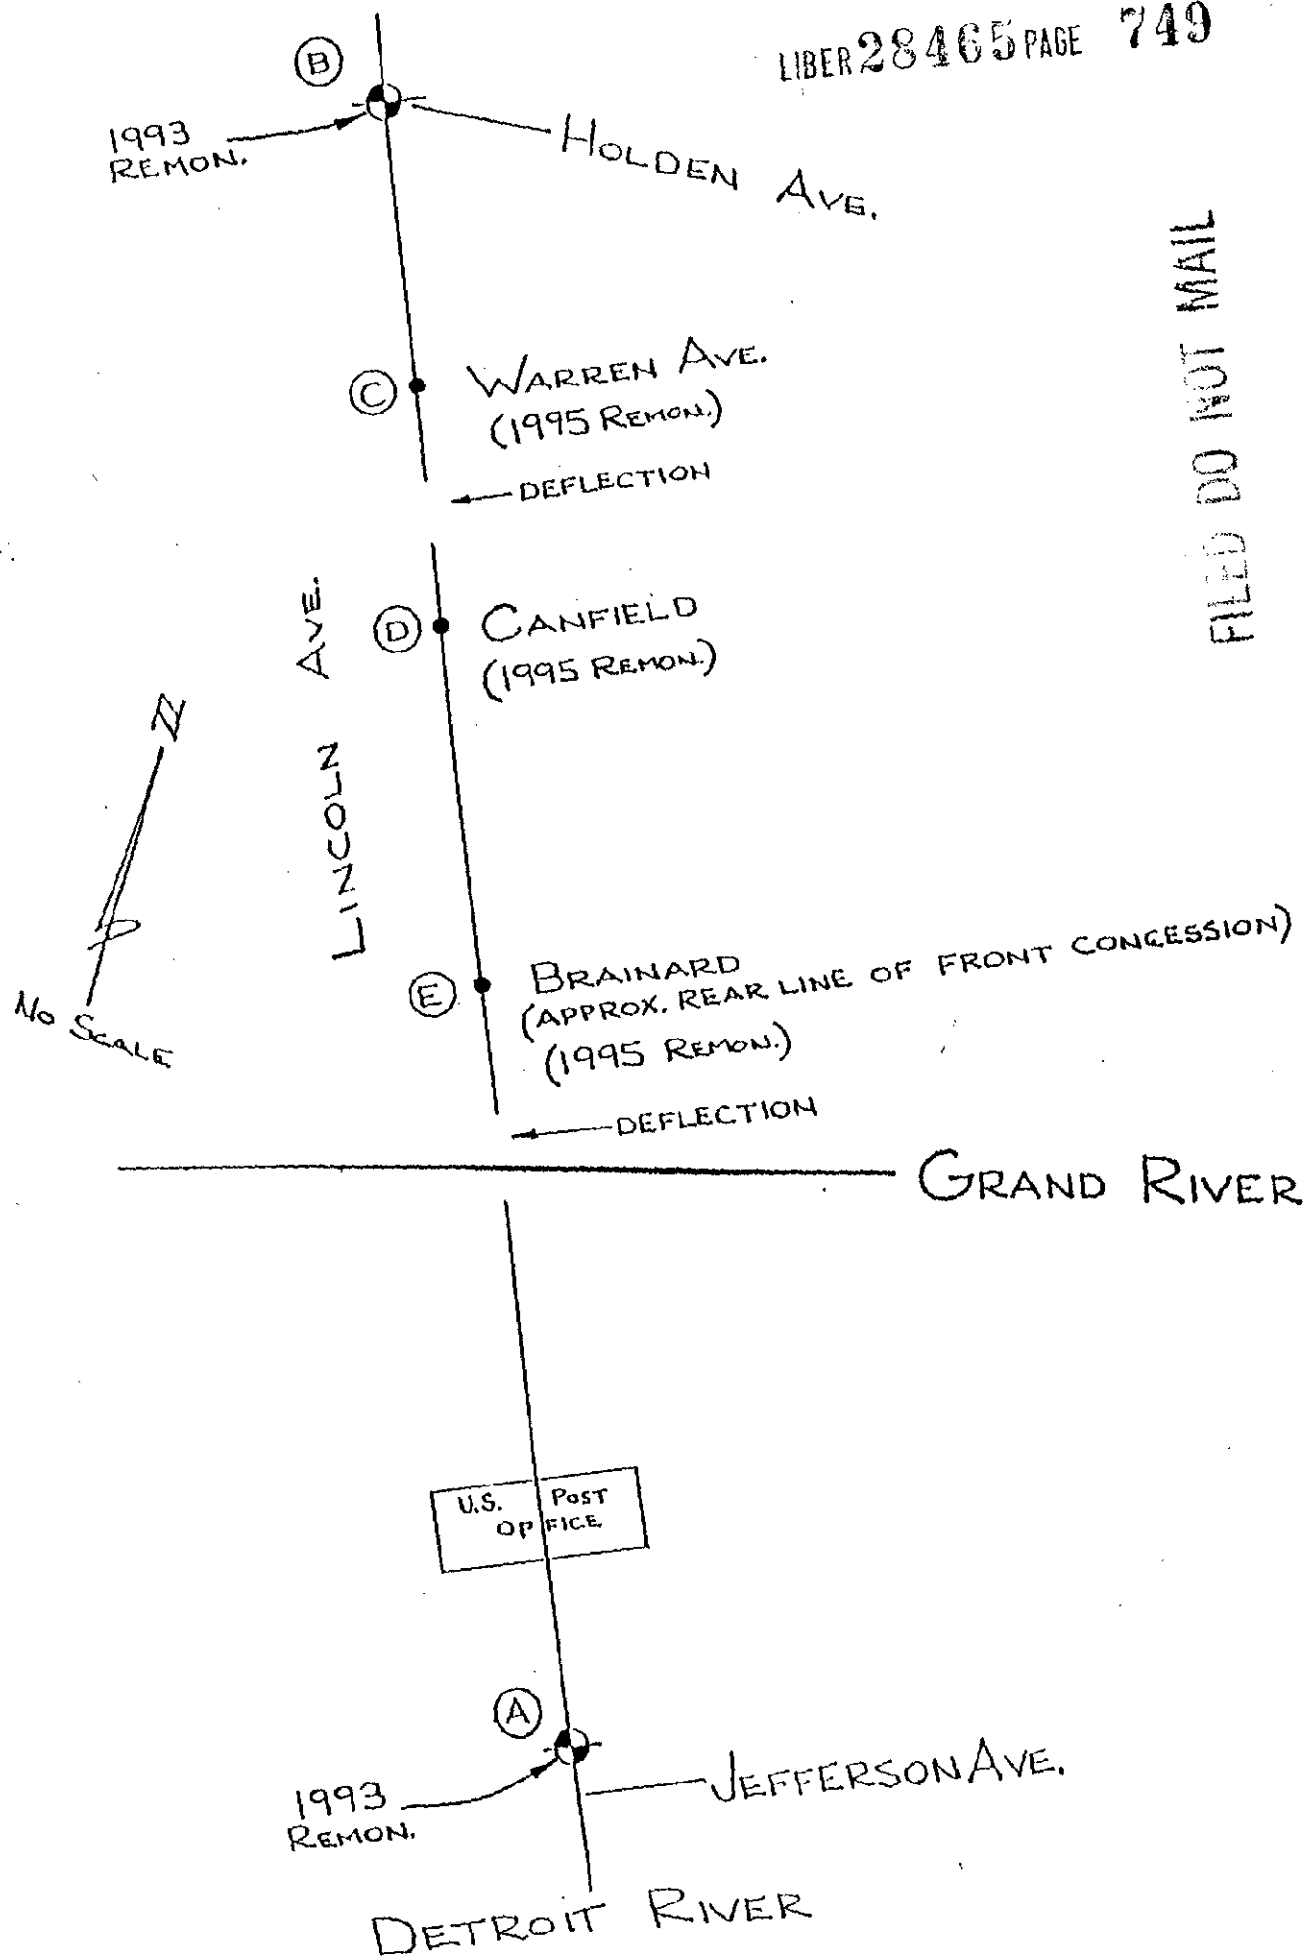 LIBER 28465 PAGE 749
B
1993
REMON.
HOLDEN AVE.
FILED DO NOT MAIL
C
WARREN AVE.
(1995 REMON.)
DEFLECTION
LINCOLN AVE.
D
CANFIELD
(1995 REMON.)
N
NO SCALE
E
BRAINARD
(APPROX. REAR LINE OF FRONT CONCESSION)
(1995 REMON.)
DEFLECTION
GRAND RIVER
U.S. POST
OFFICE
A
1993
REMON.
JEFFERSON AVE.
DETROIT RIVER